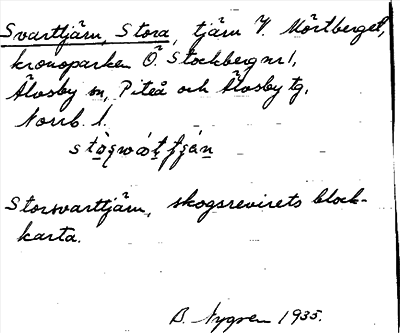 Svarttjärn, Stora, tjärn V. Mörtberget,
kronoparken Ö. Stockberg nr 1,
Älvsby sn, Piteå och Älvsby tg,
Norrb. l.
Storsvarttjärn, skogsrevirets block-
karta.
B. Nygren 1935.